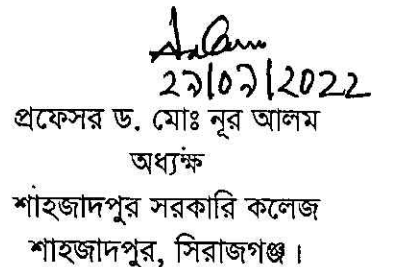 ২৯|০৯|2022
প্রফেসর ড. মোঃ নূর আলম
অধ্যক্ষ
শাহজাদপুর সরকারি কলেজ
শাহজাদপুর, সিরাজগঞ্জ।